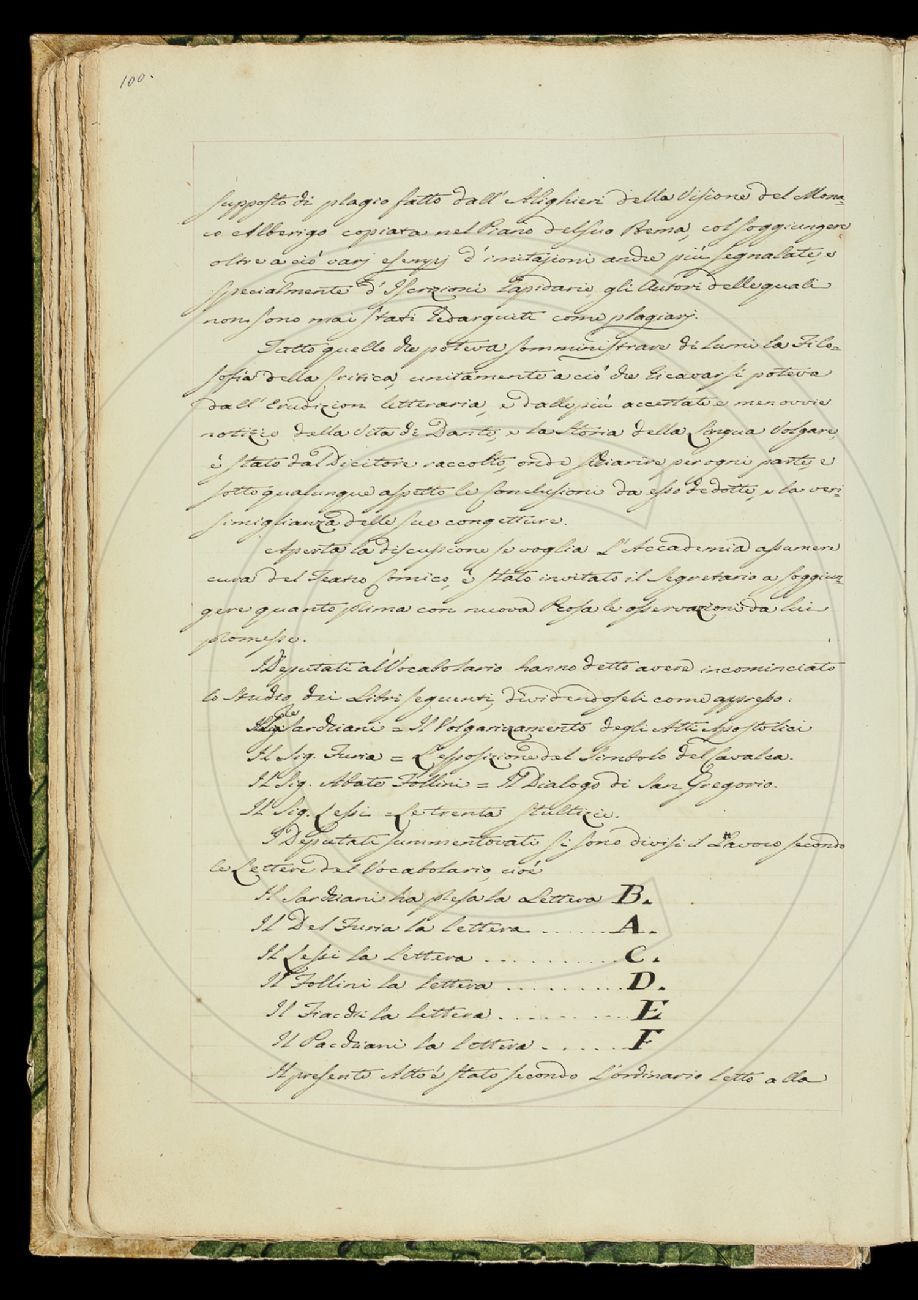 100.
supposto di plagio fatto dall' Alighieri della Visione del Mona
co Alberigo copiata nel Piano del suo Poema, col soggiungere
oltre a ciò varj esempj d'imitazioni anche più segnalate, e
specialmente d'Iscrizioni Lapidarie, gli Autori delle quali
non sono mai stati redarguiti come plagiarj.
Tutto quello che poteva somministrare di lumi la Filo=
sofia della Critica unitamente a ciò che ricavarsi poteva
dall' Erudizion letteraria, e dalle più accertate e men ovvie
notizie della Vita di Dante, e la Storia della Lingua Volgare,
è stato dal Dicitore raccolto, onde schiarire per ogni parte, e
sotto qualunque aspetto le Conclusioni da esso dedotte, e la veri=
simiglianza delle sue congetture.
Aperta la discussione se voglia l'Accademia assumere
cura del Teatro Comico, è stato invitato il Segretario a soggiun=
gere quanto prima con nuova Prosa le osservazioni da lui
promesse.
I Deputati al Vocabolario hanno detto avere incominciato
lo studio dei Libri seguenti, dividendoseli come appresso.
Sarchiani = Il Volgarizzamento degli Atti Apostolici
Il Sig. Furia = L'esposizione del Simbolo del Cavalca.
Il Sig. Abate Follini = Il Dialogo di San Gregorio.
Il Sig. Lessi = Le trenta stultizie.
I Deputati summentovati si sono divisi il Lavoro secondo
le Lettere del Vocabolario, cioè
Il Sarchiani ha presa la Lettera B.
Il Del Furia la lettera ...... A.
Il Lessi la Lettera .......... C.
Il Follini la lettera ......... D.
Il Fiacchi la lettera ......... E
Il Pacchiani la lettera ...... F
Il presente Atto è stato secondo l'ordinario letto alla